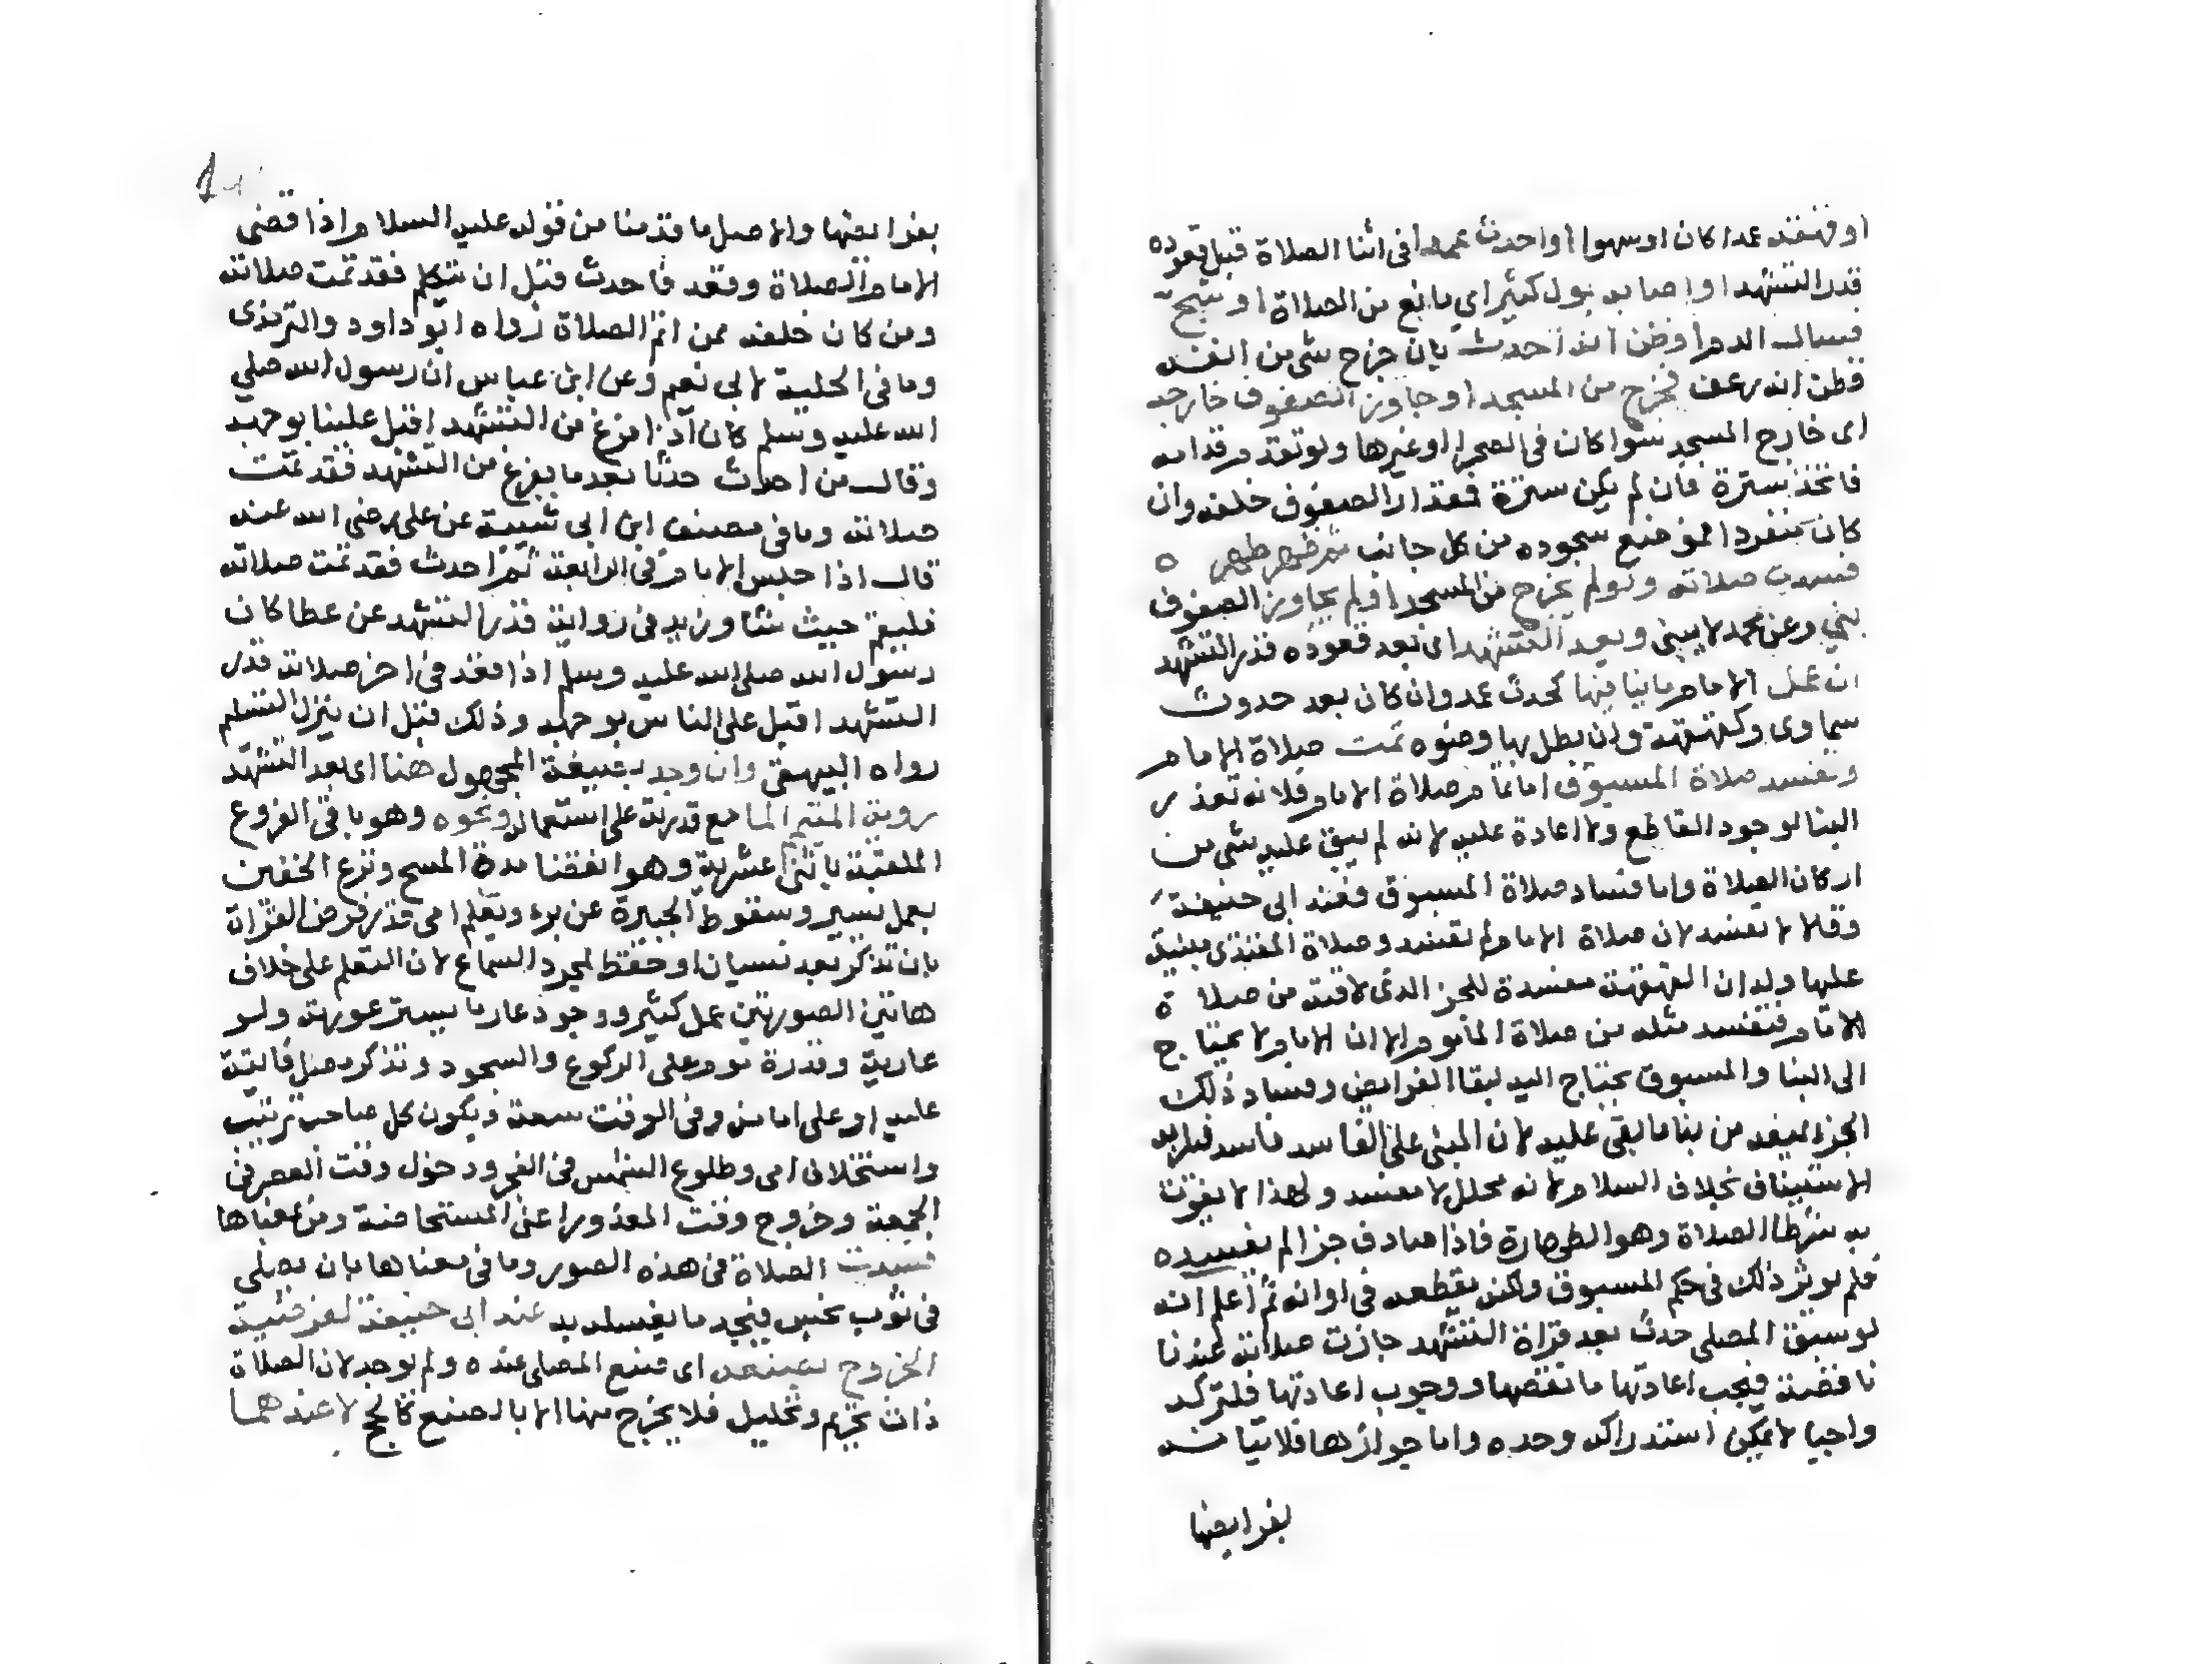 او قهقهته عمدا كان او سهوا او احدث عمدا فى اثنا الصلاة قبل قعوده
قدر التشهد او اصابه بول كثير اى مانع من الصلاة او شج
فسال الدم او ظن انه احدث بان خرج شى من انفه
فظن انه رعف فخرج من المسجد او جاوز الصفوف خارجه
اى خارج المسجد سوا كان فى الصحرا او غيرها ولو تقدم قدامه
فاتخذ سترة فان لم يكن سترة فقدار الصفوف خلفه وان
كان منفردا لموضع سجوده من كل جانب ثم ظهر طهره
فسدت صلاته ولو لم يخرج من المسجد او لم يجاوز الصفوف
بنى وعن محمد لا يبنى وبعد التشهد اى بعد قعوده قدر التشهد
ان عمل الامام ما ينافيها كحدث عمد وان كان بعد حدوث
سماوى وكقهقهة وان بطل بها وضوه تمت صلاة الامام
وتفسد صلاة المسبوق اما تمام صلاة الامام فلانه تعذر
البنا لوجود القاطع ولا اعادة عليه لانه لم يبق عليه شى من
اركان الصلاة واما فساد صلاة المسبوق فعند ابى حنيفة
وقالا لا تفسد لان صلاة الامام لم تفسد وصلاة المقتدى مبنية
عليها وله ان القهقهة مفسدة للجز الذى لاقته من صلاة
الامام فتفسد مثله من صلاة الماموم الا ان الامام لا يحتاج
الى البنا والمسبوق يحتاج اليه لبقا الفرايض وفساد ذلك
الجزء يمنعه من بنا ما بقى عليه لان المبنى على الفاسد فاسد فلا بد
الاستيناف بخلاف السلام لانه محلل لا مفسد ولهذا لا يفوت
به شرط الصلاة وهو الطهارة فاذا صادف جزا لم يفسده
فلم يوثر ذلك فى حكم المسبوق ولكن يقطعه فى اوانه ثم اعلم انه
لو سبق المصلى حدث بعد قراة التشهد جازت صلاته عندنا
ناقضة فيجب اعادتها ما نقصها ووجوب اعادتها فلتركه
واجبا لا يمكن استدراكه وحده واما جوازها فلاتيانه
بفرايضها
بفرايضها والاصل ما قدمنا من قوله عليه السلام اذا قضى
الامام الصلاة وقعد فاحدث قبل ان يتكلم فقد تمت صلاته
ومن كان خلفه ممن اتم الصلاة رواه ابو داود والترمذى
وما فى الحلية لابى نعيم وعن ابن عباس ان رسول الله صلى
الله عليه وسلم كان اذا فرغ من التشهد اقبل علينا بوجهه
وقال من احدث حدثا بعد ما يفرغ من التشهد فقد تمت
صلاته وما فى مصنف ابن ابى شيبة عن على رضى الله عنه
قال اذا جلس الامام فى الرابعة ثم احدث فقد تمت صلاته
فليقم حيث شا وزيد فى رواية قدر التشهد عن عطا كان
رسول الله صلى الله عليه وسلم اذا قعد فى اخر صلاته قدر
التشهد اقبل على الناس بوجهه وذلك قبل ان ينزل التسليم
رواه البيهقى وان وجد بصيغة المجهول هنا اى بعد التشهد
روية المتيمم الما مع قدرته على استعماله ونحوه وهو باقى الفروع
الملقبة باثنى عشرية وهو انقضا مدة المسح ونزع الخفين
بعمل يسير وسقوط الجبيرة عن برء وتعلم امى قدر فرض القراة
بان تذكر بعد نسيان او حفظ لمجرد السماع لان التعلم على خلاف
هاتين الصورتين عمل كثير ووجود عار ما يستر عورته ولو
عارية وقدرة موم على الركوع والسجود وتذكر مصل فايتة
عليه او على امامه وفى الوقت سعة ويكون كل صاحب ترتيب
واستخلاف امى وطلوع الشمس فى الفجر ودخول وقت العصر فى
الجمعة وخروج وقت المعذور اعنى المستحاضة ومن بمعناها
فسدت الصلاة فى هذه الصور وما فى معناها بان يصلى
فى ثوب نجس فيجد ما يغسله به عند ابى حنيفة لفرضية
الخروج بصنعه اى صنع المصلى عنده ولم يوجد لان الصلاة
ذات تحريم وتحليل فلا يخرج منها الا بالصنع كالحج لا عندهما